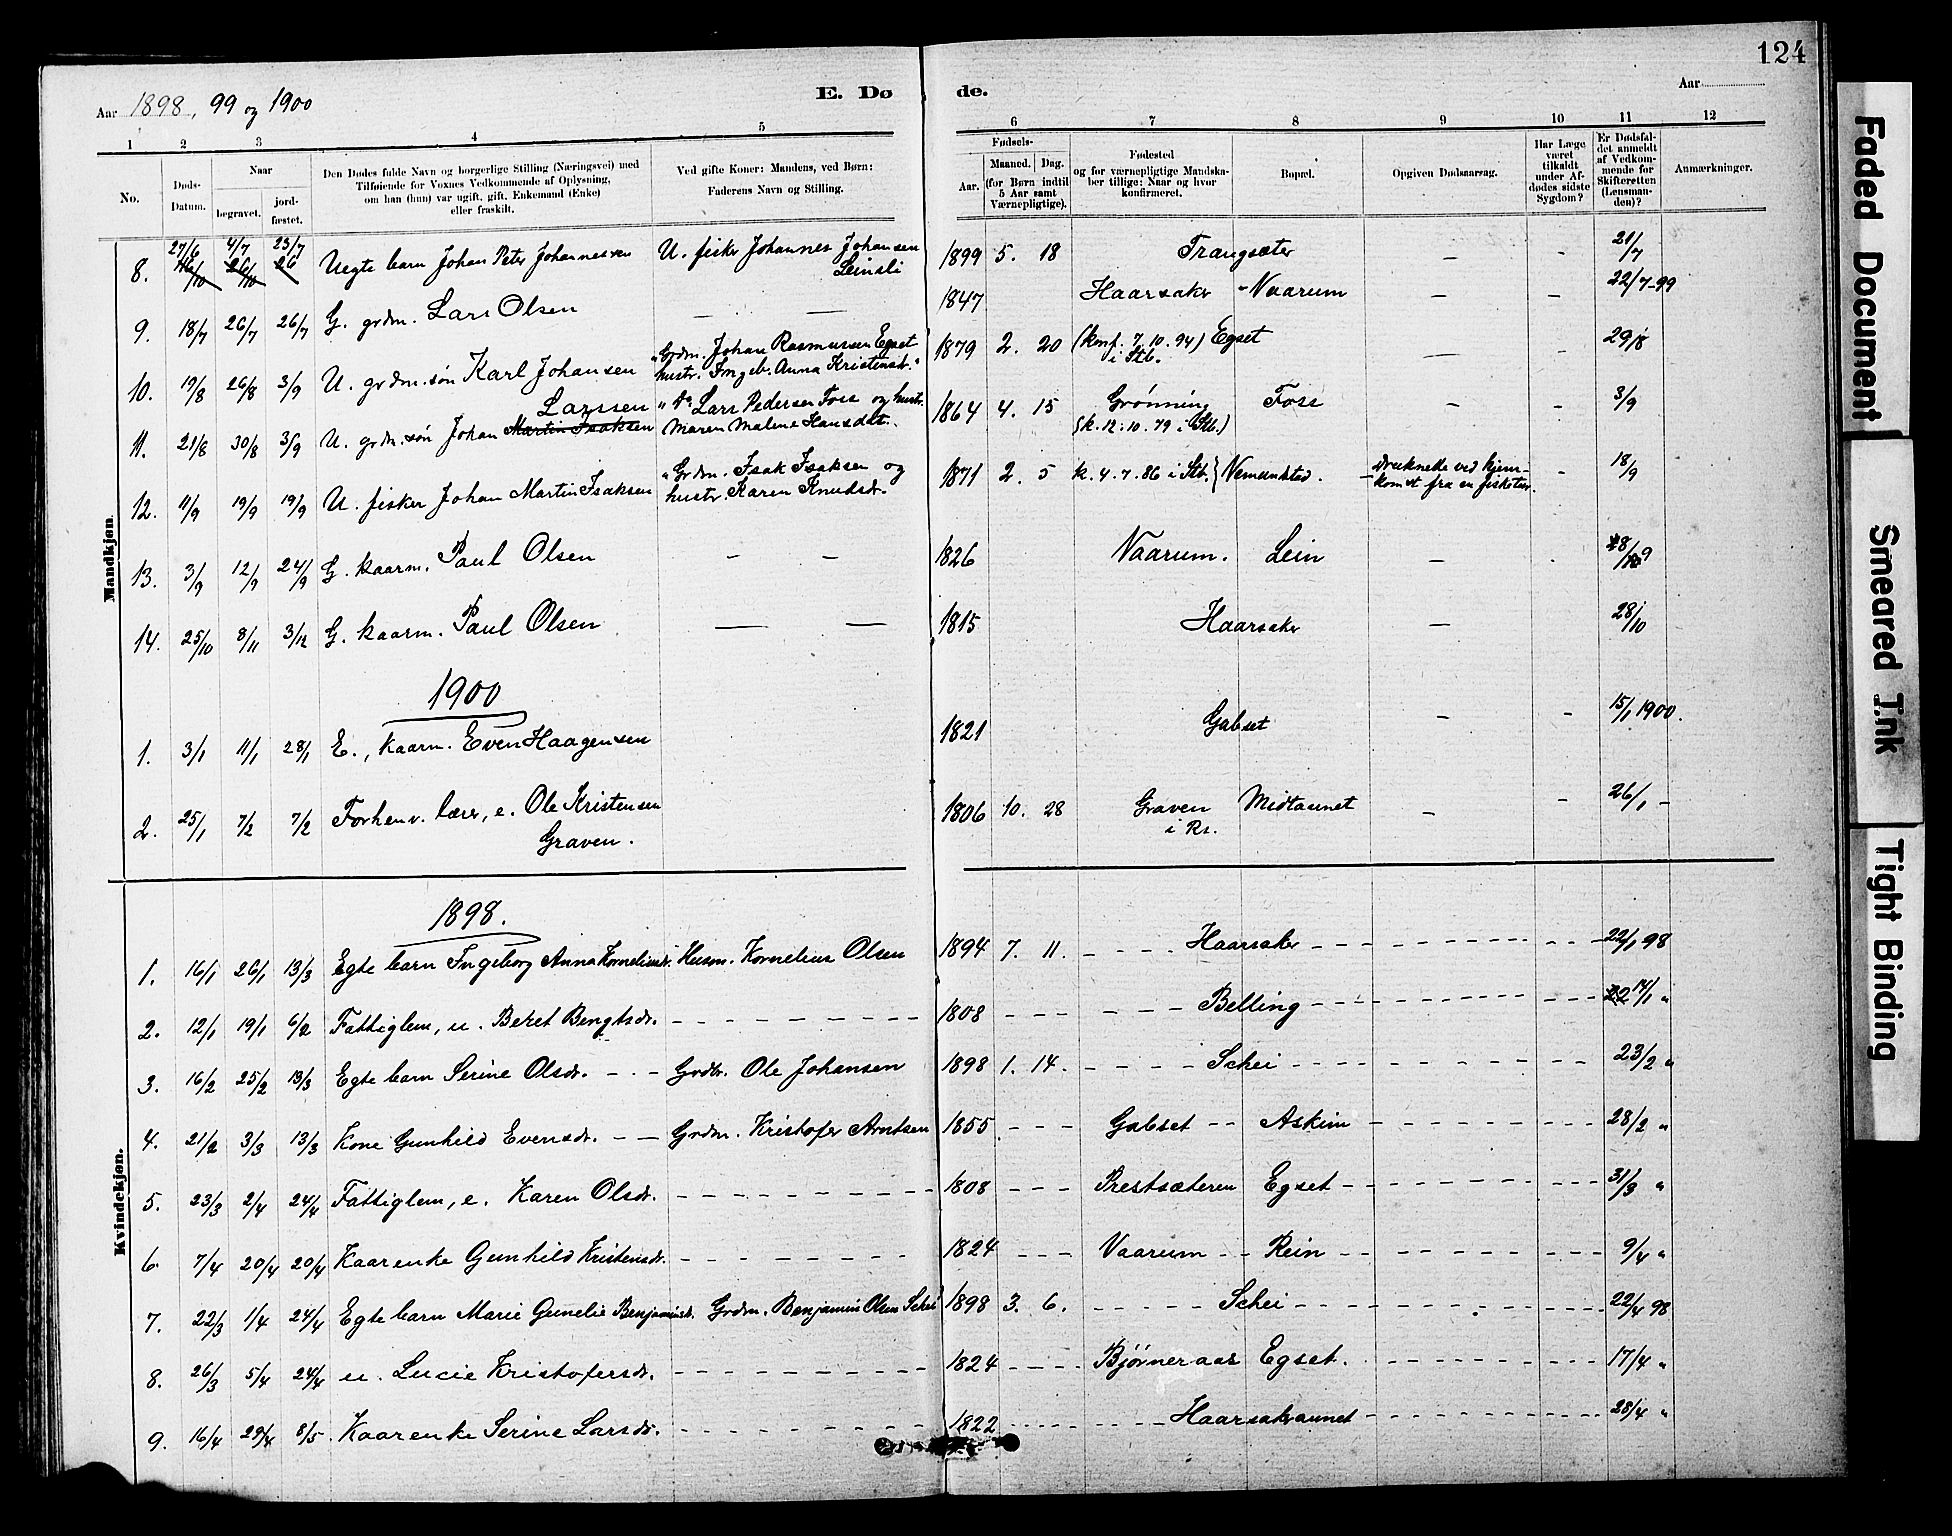 124
Aar 1898, 99 og 1900
E. Dø de.
Aar
1 2 3 4 5 6 7 8 9 10 11 12
No.
Døds-
Datum.
Naar
begravet.
jord-
fæstet.
Den Dødes fulde Navn og borgerlige Stilling (Næringsvei) med
Tilføiende for Voxnes Vedkommende af Oplysning,
om han (hun) var ugift, gift, Enkemand (Enke)
eller fraskilt.
Ved gifte Koner: Mandens, ved Børn:
Faderens Navn og Stilling.
Fødsels-
Aar.
Maaned. Dag.
(for Børn indtil
5 Aar samt
Værnepligtige).
Fødested
og for værnepligtige Mandska-
ber tillige: Naar og hvor
konfirmeret.
Bopæl.
Opgiven Dødsaarsag.
Har Læge
været
tilkaldt
under Af-
dødes sidste
Sygdom?
Er Dødsfal-
det anmeldt
af Vedkom-
mende for
Skifteretten
(Lensman-
den)?
Anmærkninger.
Mandkjøn.
8. 27/6 4/7 23/7 Uegte barn Johan Peter Johannessen U. fisker Johannes Johansen 1899 5. 18 Trangsæter – – 21/7
16/10 26/10 26 Leinsli
9. 18/7 26/7 26/7 G. grdm. Lars Olsen – – 1847 Haarsaker - Vaarum – – 22/7-99
10. 19/8 26/8 3/9 U. grdm. søn Karl Johansen "Grdm. Johan Rasmussen Egset 1879 2. 20 (konf. 7. 10. 94) Egset – – 29/8
hustr. Ingeb. Anna Kristensdr." i Stb.
Larssen "Do Lars Pedersen Foss og hustr. 1864 4. 15 Grønning Foss – – 3/9
11. 21/8 30/8 3/9 U. grdm. søn Johan Martin Isaksen Maren Malene Hansdtr. (k. 12. 10. 79 i Stb.)
12. 11/9 19/9 19/9 U. fisker Johan Martin Isaksen "Grdm. Isak Isaksen og 1871 2. 5 k. 4. 7. 86 i Stb. } Nemundstad. – Druknede ved hjem- – 18/9
hustr. Karen Knudsdr. – komst fra en fisketur.
13. 3/9 12/9 24/9 G. kaarm. Paul Olsen – – 1826 Vaarum. Lein –
14. 25/10 8/11 3/12 G. kaarm. Paul Olsen — — 1815 Haarsaker – 28/10
1900
1. 3/1 11/1 28/1 E., kaarm. Even Haagensen 1821 Gabset – – 15/1 1900.
2. 25/1 7/2 7/2 Forhenv. lærer, e. Ole Kristensen 1806 10. 28 Graven Midtaunet – – 26/1 –
Graven. i Rs.
Kvindekjøn.
1898.
1. 16/1 26/1 13/3 Egte barn Ingeborg Anna Korneliusdr. Husm. Kornelius Olsen 1894 7. 11. Haarsaker 22/1 98
2. 12/1 19/1 6/2 Fattiglem, u. Beret Bengtsdr. 1808 Belling "
3. 16/2 25/2 13/3 Egte barn Serine Olsdr. Grdbr. Ole Johansen 1898 1. 14. Schei 23/2 "
4. 21/2 3/3 13/3 Kone Gunhild Evensdr. Grdm. Kristofer Arntsen 1855 Gabset Askim 28/2 "
5. 23/3 2/4 24/4 Fattiglem, e. Karen Olsdr. 1808 Prestsæteren Egset 31/3 "
6. 7/4 20/4 20/4 Kaarenke Gunhild Kristensdr. 1824 Vaarum Rein 9/4 "
7. 22/3 1/4 24/4 Egte barn Marie Gunelie Benjaminsdr. Grdm. Benjamin Olsen Schei 1898 3. 6. Schei 22/4 98
8. 26/3 5/4 24/4 u. Lucie Kristofersdr. 1824 Bjørneraas Egset. 17/4 "
9. 16/4 29/4 8/5 Kaarenke Serine Larsdr. 1822 Haarsakeraunet 28/4 "
Faded Document
Smeared Ink
Tight Binding